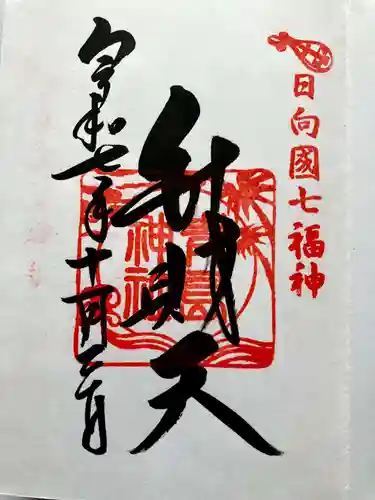 日向國七福神
弁財天
青島神社
令和七年十一月二日